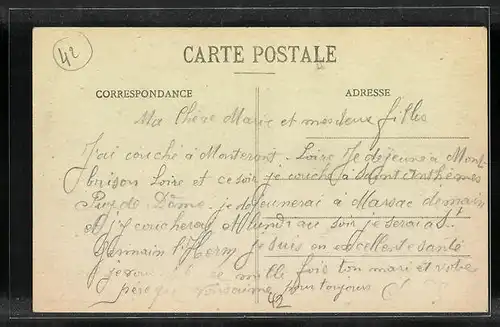 42
CARTE POSTALE
CORRESPONDANCE
ADRESSE
Ma Chère Marie et mes deux filles
J'ai couché à Monteront - Loire Je déjeune à Mont
brison Loire et ce soir je couche à Saint Anthèmes
Puy de Dôme. je déjeunerai à Marsac demain
et j'y coucherai Lundi au soir je serai à St
Germain l'Herm je suis en excellente santé
je mille fois ton mari et votre
père qui pour toujours
42